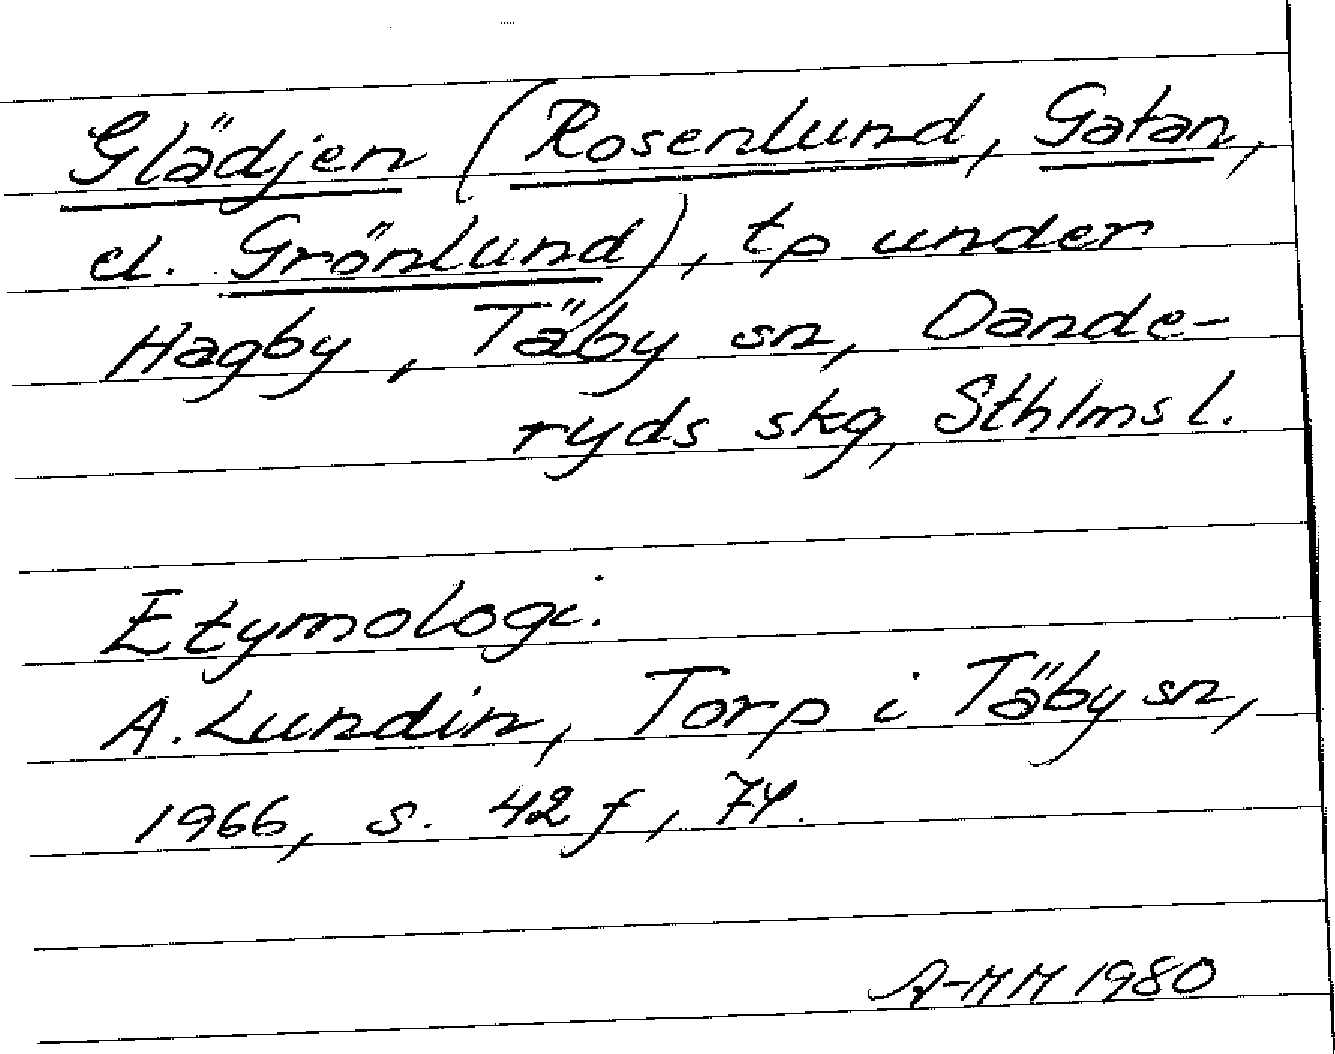 Glädjen (Rosenlund, Gatan,
el. Grönlund), tp under
Hagby, Täby sn, Dande-
ryds skg, Sthlms l.
Etymologi.
A. Lundin, Torp i Täby sn,
1966, s. 42 f, 74.
A-MM 1980